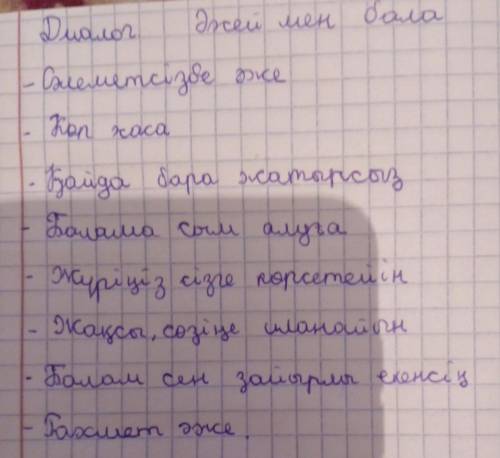 Диалог Әжей мен бала
- Сәлеметсізбе әже
- Көп жаса
- Қайда бара жатырсыз
- Балама сыи алуға
- Жүріңіз сізге көрсетейін
- Жақсы, сөзіңе инанайын
- Балам сен зайырлы екенсің
- Рахмет әже.